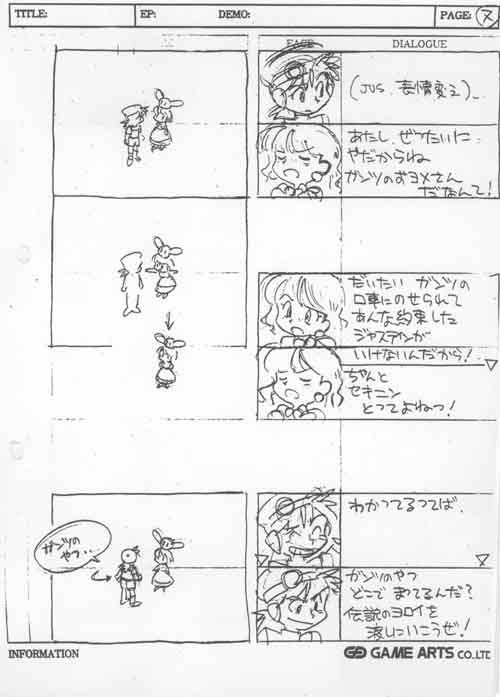 TITLE:
EP:
DEMO:
PAGE: 7
FACE
DIALOGUE
(JUS. 表情変え)
あたし、ぜったいに
やだからね
ガンツのおヨメさん
だなんて!
だいたい ガンツの
口車にのせられて
あんな約束した
ジャスティンが
いけないんだから!
ちゃんと
セキニン
とってよねっ!
ガンツの
やつ・・
わかってるってば.
ガンツのやつ
どこで まってるんだ?
伝説のヨロイを
渡しにいこうぜ!
INFORMATION
GAME ARTS CO.,LTD.